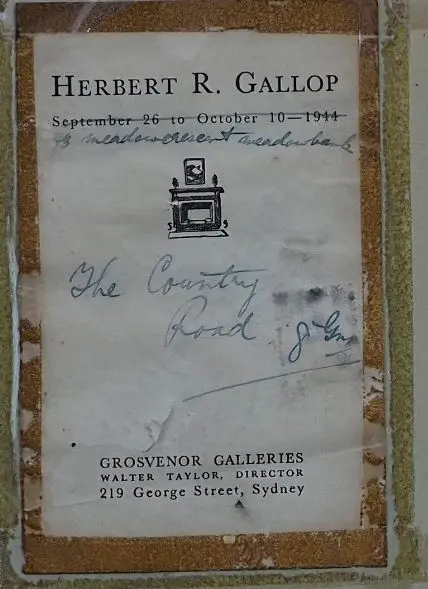 HERBERT R. GALLOP
September 26 to October 10—1944
meadowcresent meadowbank
The Country
Road 8 Gns
GROSVENOR GALLERIES
WALTER TAYLOR, DIRECTOR
219 George Street, Sydney